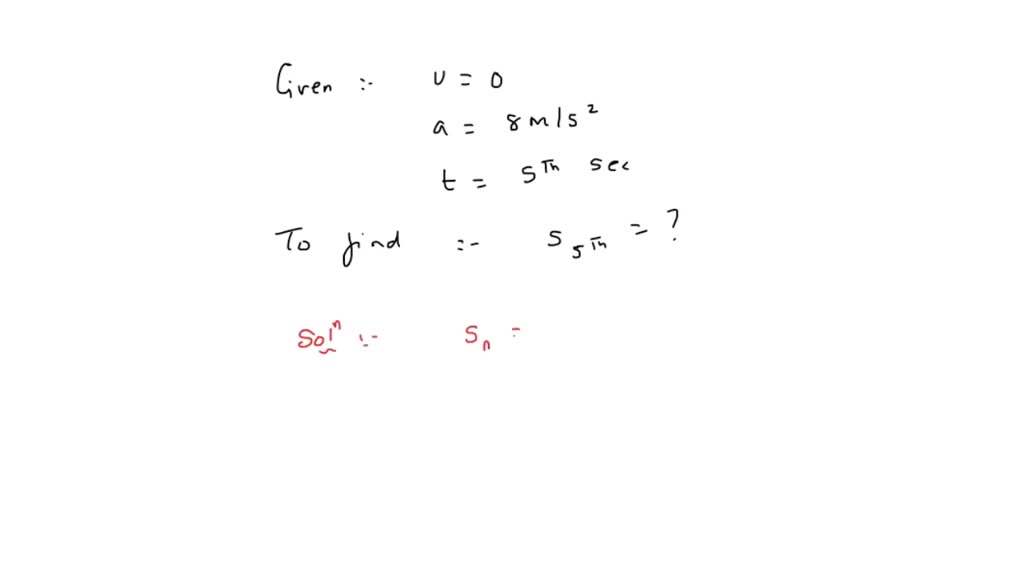 Given :- u = 0
a = 8 m/s²
t = 5Th sec
To find :- S5Th = ?
Solⁿ :- Sn =